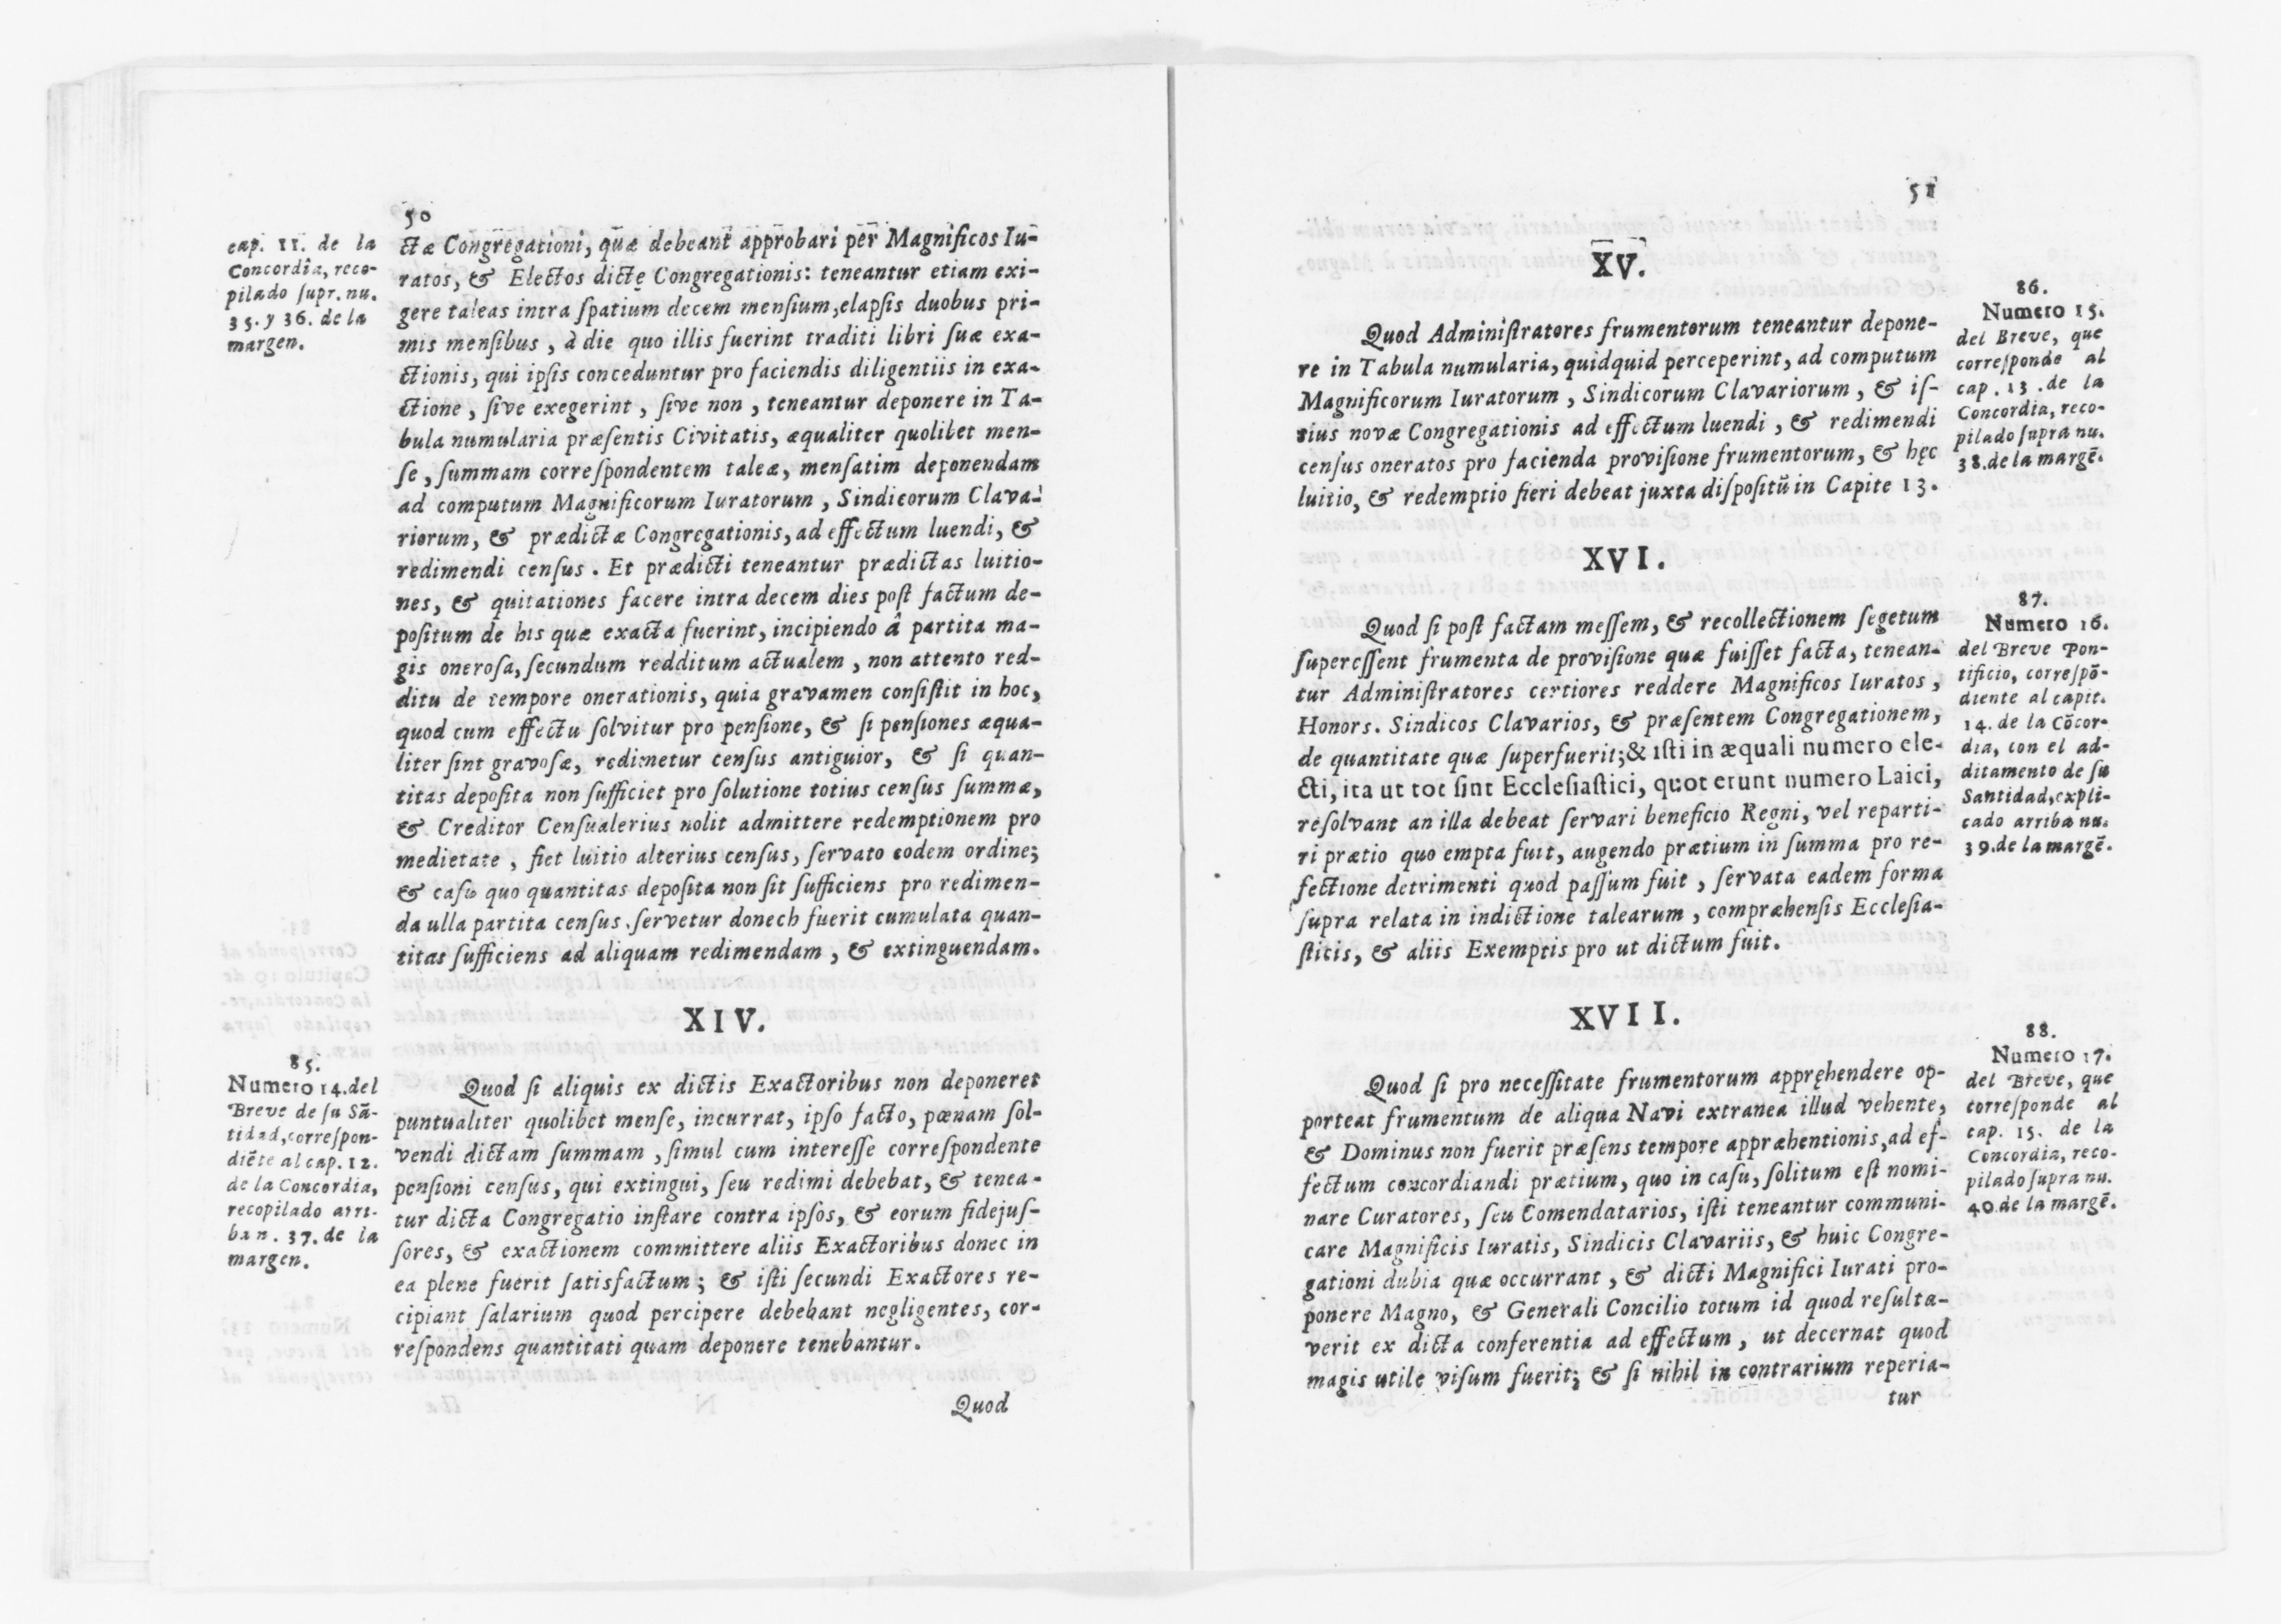 50
cap. 11. de la
Concordia, reco-
pilado supr. nu.
35. y 36. de la
margen.
ctæ Congregationi, quæ debeant approbari per Magnificos Iu-
ratos, & Electos dictę Congregationis: teneantur etiam exi-
gere taleas intra spatium decem mensium, elapsis duobus pri-
mis mensibus, à die quo illis fuerint traditi libri suæ exa-
ctionis, qui ipsis conceduntur pro faciendis diligentiis in exa-
ctione, sive exegerint, sive non, teneantur deponere in Ta-
bula numularia præsentis Civitatis, æqualiter quolibet men-
se, summam correspondentem taleæ, mensatim deponendam
ad computum Magnificorum Iuratorum, Sindicorum Clava-
riorum, & prædictæ Congregationis, ad effectum luendi, &
redimendi census. Et prædicti teneantur prædictas luitio-
nes, & quitationes facere intra decem dies post factum de-
positum de his quæ exacta fuerint, incipiendo â partita ma-
gis onerosa, secundum redditum actualem, non attento red-
ditu de tempore onerationis, quia gravamen consistit in hoc,
quod cum effectu solvitur pro pensione, & si pensiones æqua-
liter sint gravosæ, redimetur census antiguior, & si quan-
titas deposita non sufficiet pro solutione totius census summæ,
& Creditor Censualerius nolit admittere redemptionem pro
medietate, fiet luitio alterius census, servato eodem ordine;
& casu quo quantitas deposita non sit sufficiens pro redimen-
da ulla partita census, servetur donech fuerit cumulata quan-
titas sufficiens ad aliquam redimendam, & extinguendam.
XIV.
85.
Numero 14. del
Breve de su Sā-
tidad, correspon-
diēte al cap. 12.
de la Concordia,
recopilado arri-
ba n. 37. de la
margen.
Quod si aliquis ex dictis Exactoribus non deponeret
puntualiter quolibet mense, incurrat, ipso facto, pœnam sol-
vendi dictam summam, simul cum interesse correspondente
pensioni census, qui extingui, seu redimi debebat, & tenea-
tur dicta Congregatio instare contra ipsos, & eorum fidejus-
sores, & exactionem committere aliis Exactoribus donec in
ea plene fuerit satisfactum; & isti secundi Exactores re-
cipiant salarium quod percipere debebant negligentes, cor-
respondens quantitati quam deponere tenebantur.
Quod
51
XV.
Quod Administratores frumentorum teneantur depone-
re in Tabula numularia, quidquid perceperint, ad computum
Magnificorum Iuratorum, Sindicorum Clavariorum, & is-
tius novæ Congregationis ad effectum luendi, & redimendi
census oneratos pro facienda provisione frumentorum, & hęc
luitio, & redemptio fieri debeat juxta dispositū in Capite 13.
86.
Numero 15.
del Breve, que
corresponde al
cap. 13. de la
Concordia, reco-
pilado supra nu.
38. de la margē.
XVI.
Quod si post factam messem, & recollectionem segetum
superessent frumenta de provisione quæ fuisset facta, tenean-
tur Administratores certiores reddere Magnificos Iuratos,
Honors. Sindicos Clavarios, & præsentem Congregationem,
de quantitate quæ superfuerit; & isti in æquali numero ele-
cti, ita ut tot sint Ecclesiastici, quot erunt numero Laici,
resolvant an illa debeat servari beneficio Regni, vel reparti-
ri prætio quo empta fuit, augendo prætium in summa pro re-
fectione detrimenti quod passum fuit, servata eadem forma
supra relata in indictione talearum, compræhensis Ecclesia-
sticis, & aliis Exemptis pro ut dictum fuit.
87.
Numero 16.
del Breve Pon-
tificio, correspō-
diente al capit.
14. de la Cōcor-
dia, con el ad-
ditamento de su
Santidad, expli-
cado arriba nu.
39. de la margē.
XVII.
Quod si pro necessitate frumentorum appręhendere op-
porteat frumentum de aliqua Navi extranea illud vehente,
& Dominus non fuerit præsens tempore appræhentionis, ad ef-
fectum concordiandi prætium, quo in casu, solitum est nomi-
nare Curatores, seu Comendatarios, isti teneantur communi-
care Magnificis Iuratis, Sindicis Clavariis, & huic Congre-
gationi dubia quæ occurrant, & dicti Magnifici Iurati pro-
ponere Magno, & Generali Concilio totum id quod resulta-
verit ex dicta conferentia ad effectum, ut decernat quod
magis utile visum fuerit; & si nihil in contrarium reperia-
tur
88.
Numero 17.
del Breve, que
corresponde al
cap. 15. de la
Concordia, reco-
pilado supra nu.
40. de la margē.